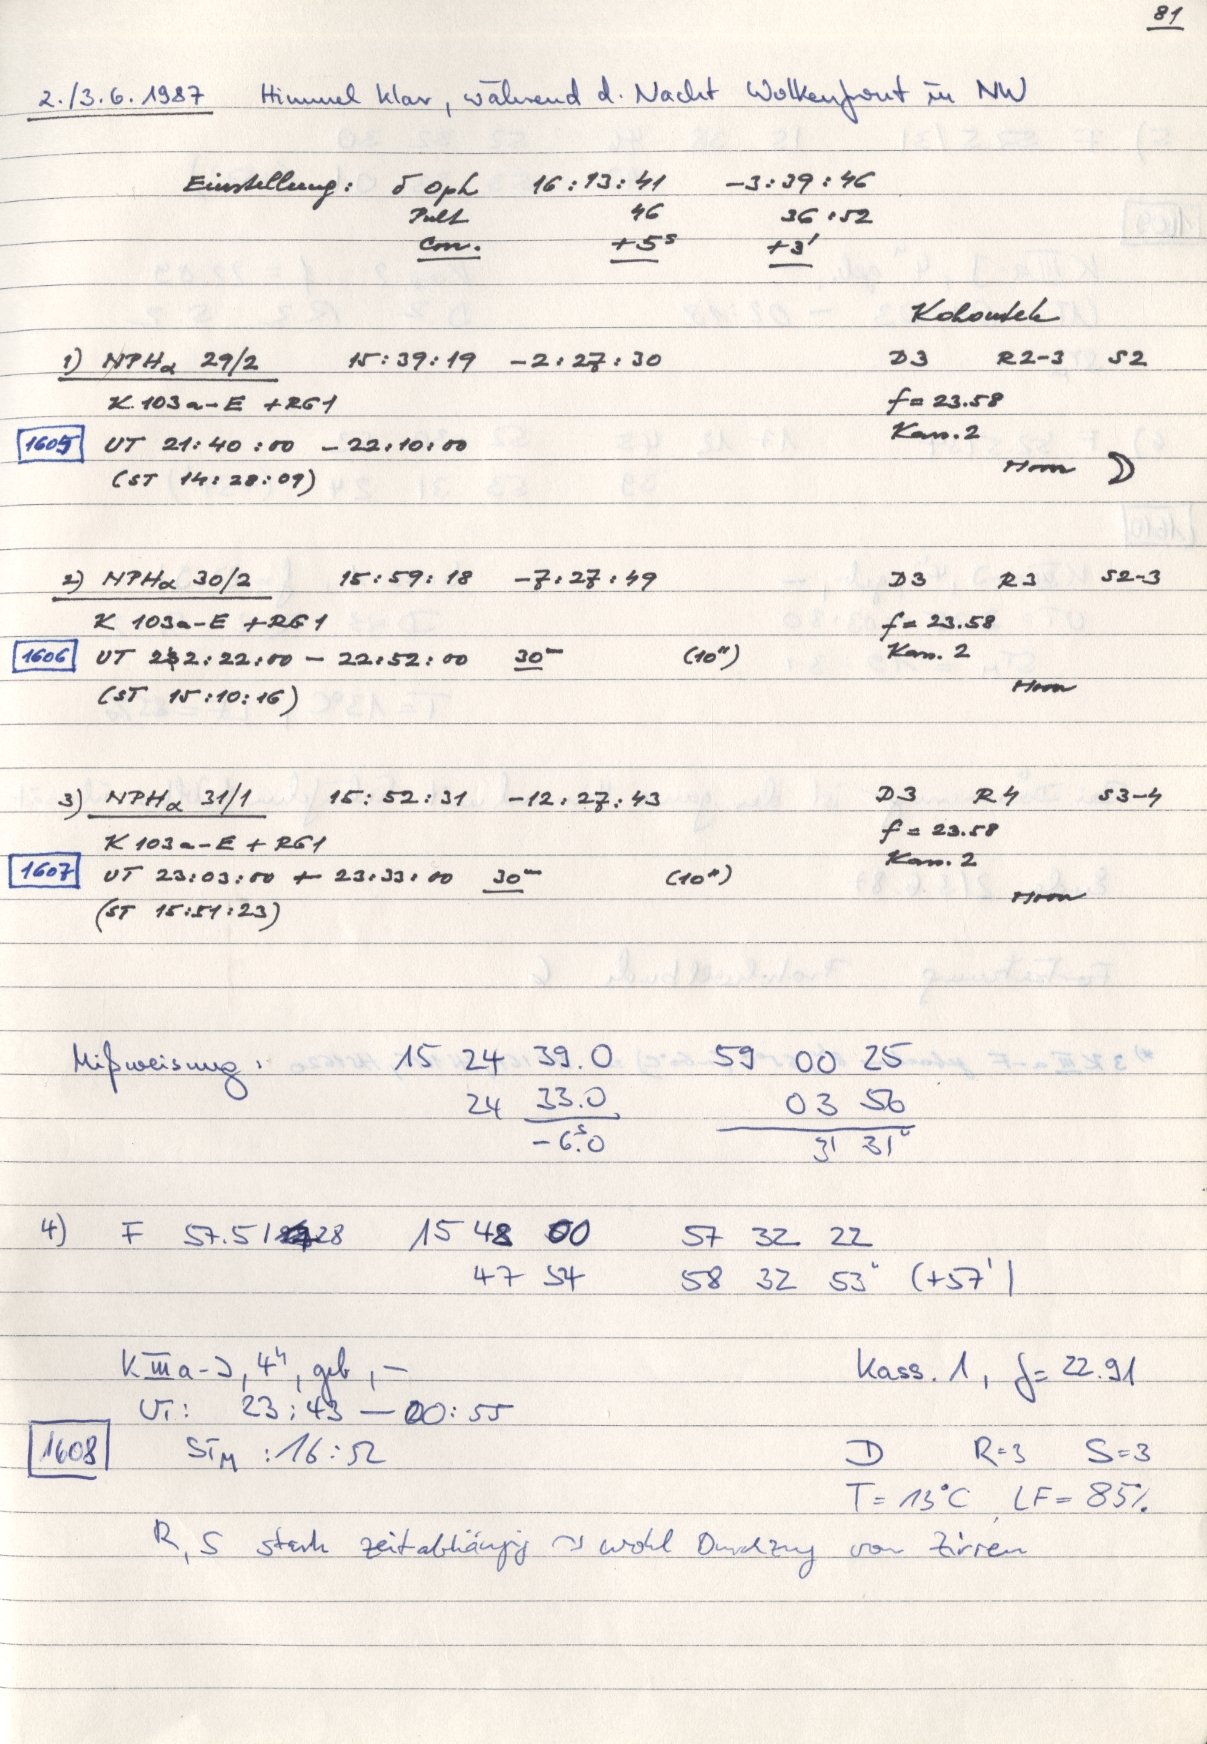 81
2./3.6.1987 Himmel klar, während d. Nacht Wolkenfront in NW
Einstellung: δ Oph 16:13:41 -3:39:46
Pult 46 36:52
Corr. +5ˢ +3'
Kohoutek
1) NPHα 29/2 15:39:19 -2:27:30 D3 R2-3 S2
K 103a-E + RG1 f = 23.58
1605 UT 21:40:00 - 22:10:00 Kass. 2
(ST 14:28:09) Moon
2) NPHα 30/2 15:59:18 -7:27:49 D3 R3 S2-3
K 103a-E + RG1 f = 23.58
1606 UT 22:22:00 - 22:52:00 30ᵐ (10") Kass. 2
(ST 15:10:16) Moon
3) NPHα 31/1 15:52:31 -12:27:43 D3 R4 S3-4
K 103a-E + RG1 f = 23.58
1607 UT 23:03:00 - 23:33:00 30ᵐ (10") Kass. 2
(ST 15:51:23) Moon
Mißweisung: 15 24 39.0 59 00 25
24 33.0 03 56
-6ˢ.0 3' 31"
4) F 57.5/28 15 48 00 57 32 22
47 54 58 32 53" (+57')
K IIIa-J, 4ʰ, geb, — Kass. 1, f = 22.91
UT: 23:43 — 00:55
1608 STM : 16:52 D R=3 S=3
T = 13°C, LF = 85%
R, S stark zeitabhängig ~> wohl Durchzug von Zirren